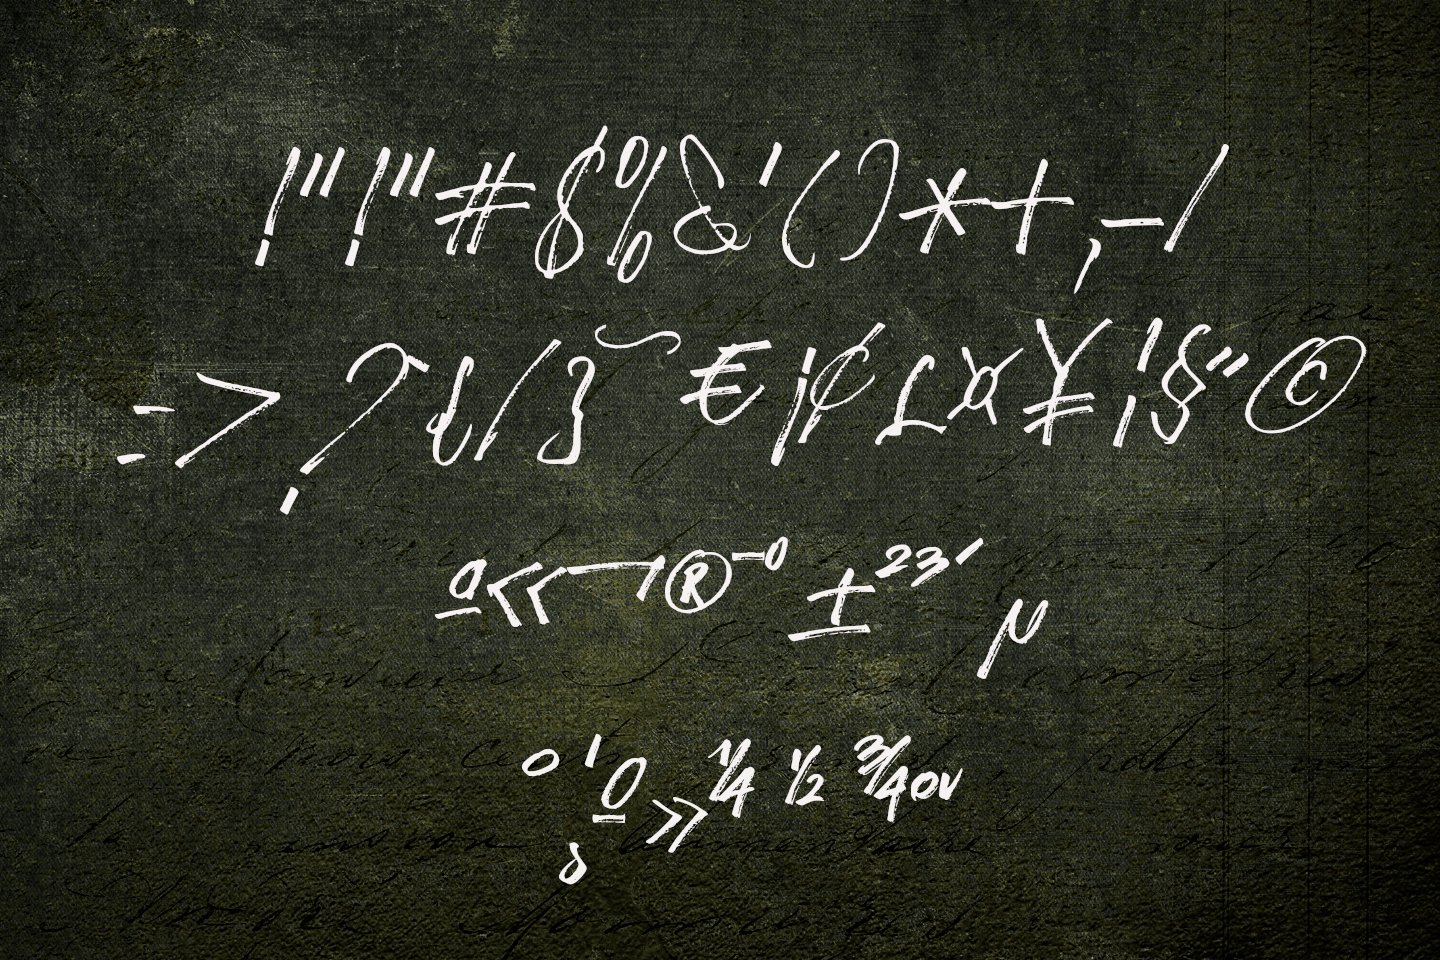 !"!"#$%&'()*+,-/
=>?{/}~€¡¢£¤¥¦§¨©
ª«¬®¯°±²³´µ
º»¼½¾